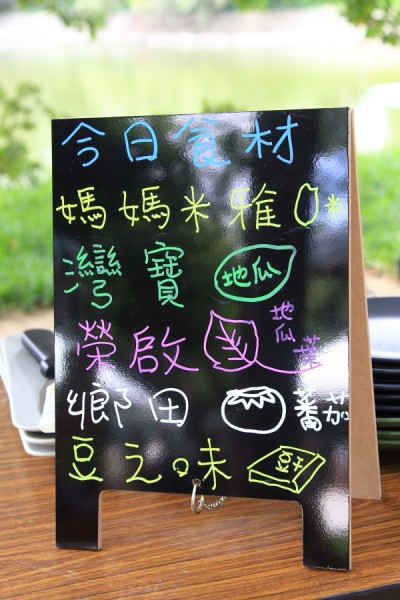 今日食材
媽媽米雅
灣寶 地瓜
榮啟 地瓜葉
鄉田 蕃茄
豆之味 豆干